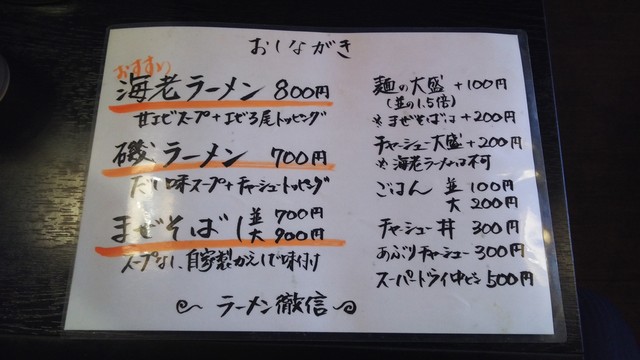 おしながき
おすすめ
海老ラーメン 800円
甘エビスープ+エビ3尾トッピング
磯ラーメン 700円
だし味スープ+チャーシュートッピング
まぜそば 並 700円
大 900円
スープなし、自家製かえしで味付
麺の大盛 +100円
(並の1.5倍)
※まぜそばは +200円
チャーシュー大盛 +200円
※海老ラーメンは不可
ごはん 並 100円
大 200円
チャーシュー丼 300円
あぶりチャーシュー 300円
スーパードライ中ビン 500円
ラーメン徹信